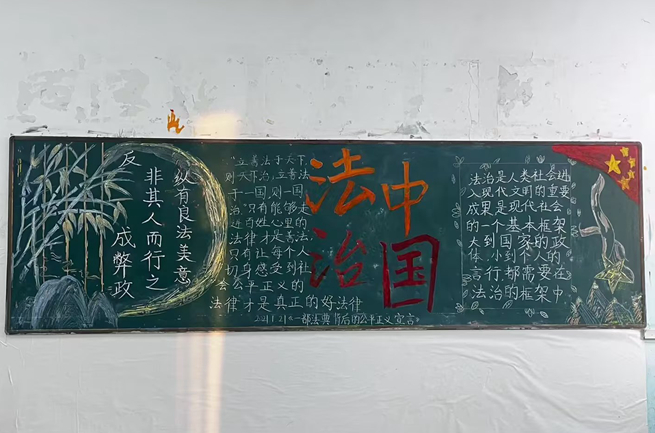 纵有良法美意
非其人而行之
反成弊政
“立善法于天下,
则天下治,立善法
于一国,则一国
治”只有能够走
进百姓心里的
法律才是善法,
只有让每个人
切身感受到社
会公平正义的
法律才是真正的好法律
《一部法典背后的公平正义宣言》
法治
中国
法治是人类社会进
入现代文明的重要
成果是现代社会
的一个基本框架
大到国家的政
体,小到个人的
言行都需要在
法治的框架中